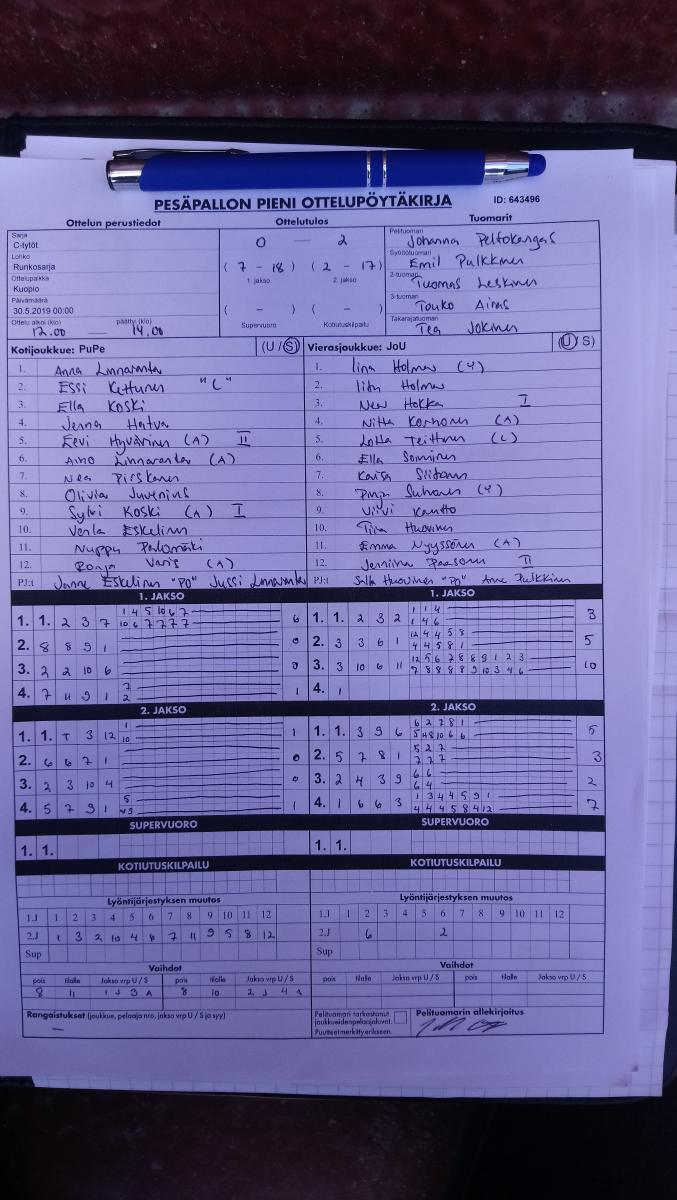 PESÄPALLON PIENI OTTELUPÖYTÄKIRJA ID: 643496
Ottelun perustiedot Ottelutulos Tuomarit
Sarja
C-tytöt
Lohko
Runkosarja
Ottelupaikka
Kuopio
Päivämäärä
30.5.2019 00:00
Ottelu alkoi (klo) päättyi (klo)
12.00 — 14.00
0 — 2
( 7 - 18 ) ( 2 - 17 )
1. jakso 2. jakso
( - ) ( - )
Supervuoro Kotiutuskilpailu
Pelituomari
Johanna Peltokangas
Syöttötuomari
Emil Pulkkinen
2-tuomari
Tuomas Leskinen
3-tuomari
Touko Airas
Takarajatuomari
Tea Jokinen
Kotijoukkue: PuPe (U / S)
1. Anna Linnaranta
2. Essi Kettunen "C"
3. Ella Koski
4. Jenna
5. Eevi Hyvärinen (A) II
6. Aino Linnaranta (A)
7. Nea Pirskanen
8. Olivia Juvenius
9. Sylvi Koski (A) I
10. Venla Eskelinen
11. Nuppu Palomäki
12. Ronja Varis (A)
PJ:t Janne Eskelinen "PO" Jussi Linnaranta
Vierasjoukkue: JoU (U / S)
1. Iina Holmes (Y)
2. Holmes
3. Nea Hokka I
4. Niina Karhonen (A)
5. Lotta Teittinen (C)
6. Ella Sorminen
7. Kaisa Siitonen
8. Pinja Suhonen (Y)
9. Viivi Kautto
10. Tiia Huovinen
11. Emma Nyyssönen (A)
12. Jenniina Paasonen II
PJ:t Salla Huovinen "PO" Anne Pulkkinen
1. JAKSO 1. JAKSO
1. 1. 2 3 7 1 4 5 10 6 7 6
10 6 7 7 7 7
2. 8 8 9 1 0
3. 2 2 10 6 0
4. 7 11 9 1 7 1
2
1. 1. 2 3 2 1 1 4 3
1 4 6
2. 3 3 6 1 12 4 4 5 8 5
4 4 5 8 1
3. 3 10 6 11 12 5 6 7 8 8 9 1 2 3 10
7 8 8 8 8 9 10 3 4 6
4. 1
2. JAKSO 2. JAKSO
1. 1. T 3 12 1 1
10
2. 6 6 7 1 0
3. 2 3 10 4 0
4. 5 7 9 1 5 1
1. 1. 3 9 6 6 2 7 8 1 5
2. 5 7 8 1 5 2 7 3
7 7 7
3. 2 4 3 9 6 6 2
6 4
4. 1 6 6 3 1 3 4 4 5 9 1 7
4 4 4 5 8 4 12
SUPERVUORO SUPERVUORO
1. 1. 1. 1.
KOTIUTUSKILPAILU KOTIUTUSKILPAILU
Lyöntijärjestyksen muutos
1.J 1 2 3 4 5 6 7 8 9 10 11 12
2.J 1 3 2 10 4 6 7 11 9 5 8 12
Sup
Lyöntijärjestyksen muutos
1.J 1 2 3 4 5 6 7 8 9 10 11 12
2.J 6 2
Sup
Vaihdot Vaihdot
pois tilalle Jakso vrp U / S pois tilalle Jakso vrp U / S
8 11 1 J 3 A 8 10 2 J 4
pois tilalle Jakso vrp U / S pois tilalle Jakso vrp U / S
Rangaistukset (joukkue, pelaaja nro, jakso vrp U / S ja syy)
—
Pelituomari tarkastanut
joukkueidenpelaajaluvat.
Puutteetmerkityerikseen.
Pelituomarin allekirjoitus